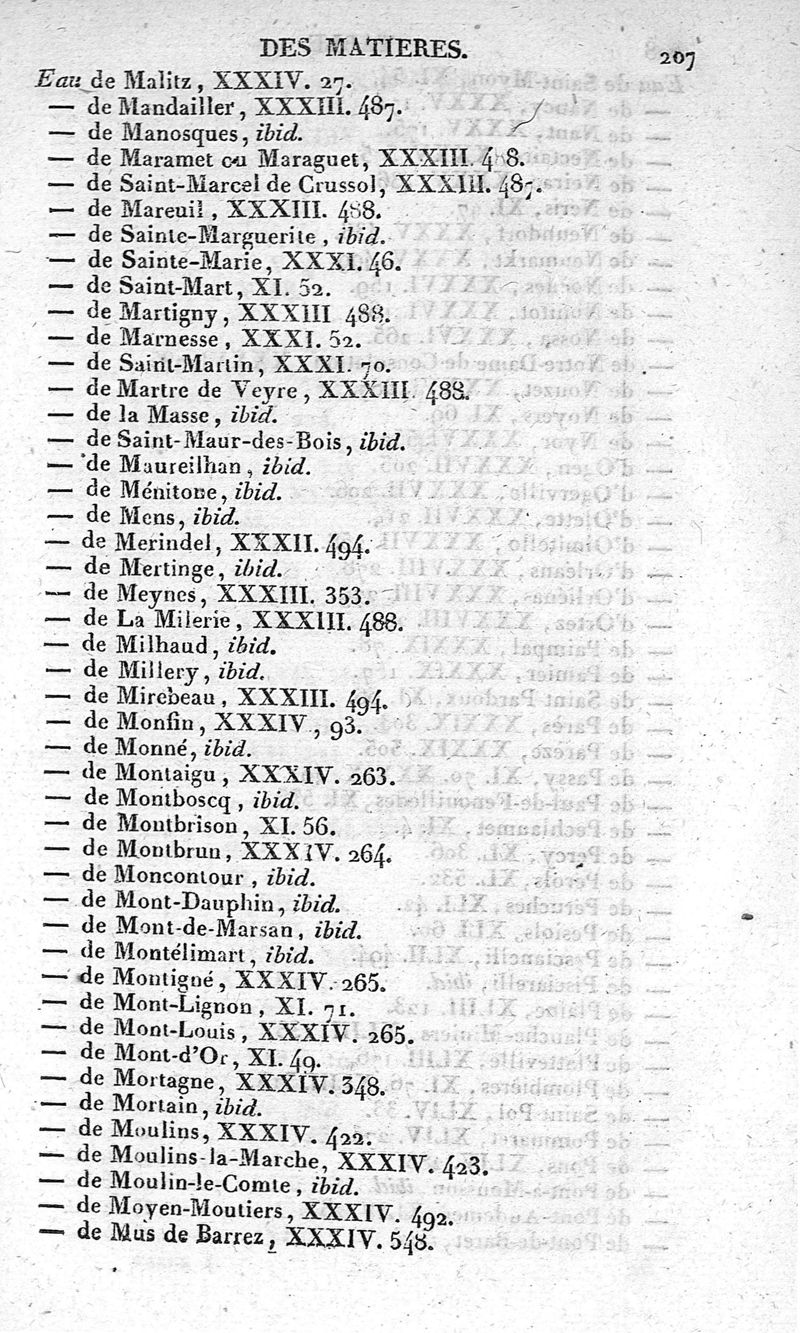 DES MATIERES. 207
Eau de Malitz, XXXIV. 27.
— de Mandailler, XXXIII. 487.
— de Manosques, ibid.
— de Maramet ou Maraguet, XXXIII. 488.
— de Saint-Marcel de Crussol, XXXIII. 487.
— de Mareuil, XXXIII. 488.
— de Sainte-Marguerite, ibid.
— de Sainte-Marie, XXXI. 46.
— de Saint-Mart, XI. 52.
— de Martigny, XXXIII 488.
— de Marnesse, XXXI. 52.
— de Saint-Martin, XXXI. 70.
— de Martre de Veyre, XXXIII. 488.
— de la Masse, ibid.
— de Saint-Maur-des-Bois, ibid.
— de Maureilhan, ibid.
— de Ménitone, ibid.
— de Mens, ibid.
— de Merindel, XXXII. 494.
— de Mertinge, ibid.
— de Meynes, XXXIII. 353.
— de La Milerie, XXXIII. 488.
— de Milhaud, ibid.
— de Millery, ibid.
— de Mirebeau, XXXIII. 494.
— de Monfin, XXXIV, 93.
— de Monné, ibid.
— de Montaigu, XXXIV. 263.
— de Montboscq, ibid.
— de Montbrison, XI. 56.
— de Montbrun, XXXIV. 264.
— de Moncontour, ibid.
— de Mont-Dauphin, ibid.
— de Mont-de-Marsan, ibid.
— de Montélimart, ibid.
— de Montigné, XXXIV. 265.
— de Mont-Lignon, XI. 71.
— de Mont-Louis, XXXIV. 265.
— de Mont-d'Or, XI. 49.
— de Mortagne, XXXIV. 348.
— de Mortain, ibid.
— de Moulins, XXXIV. 422.
— de Moulins-la-Marche, XXXIV. 423.
— de Moulin-le-Comte, ibid.
— de Moyen-Moutiers, XXXIV. 492.
— de Mus de Barrez, XXXIV. 548.